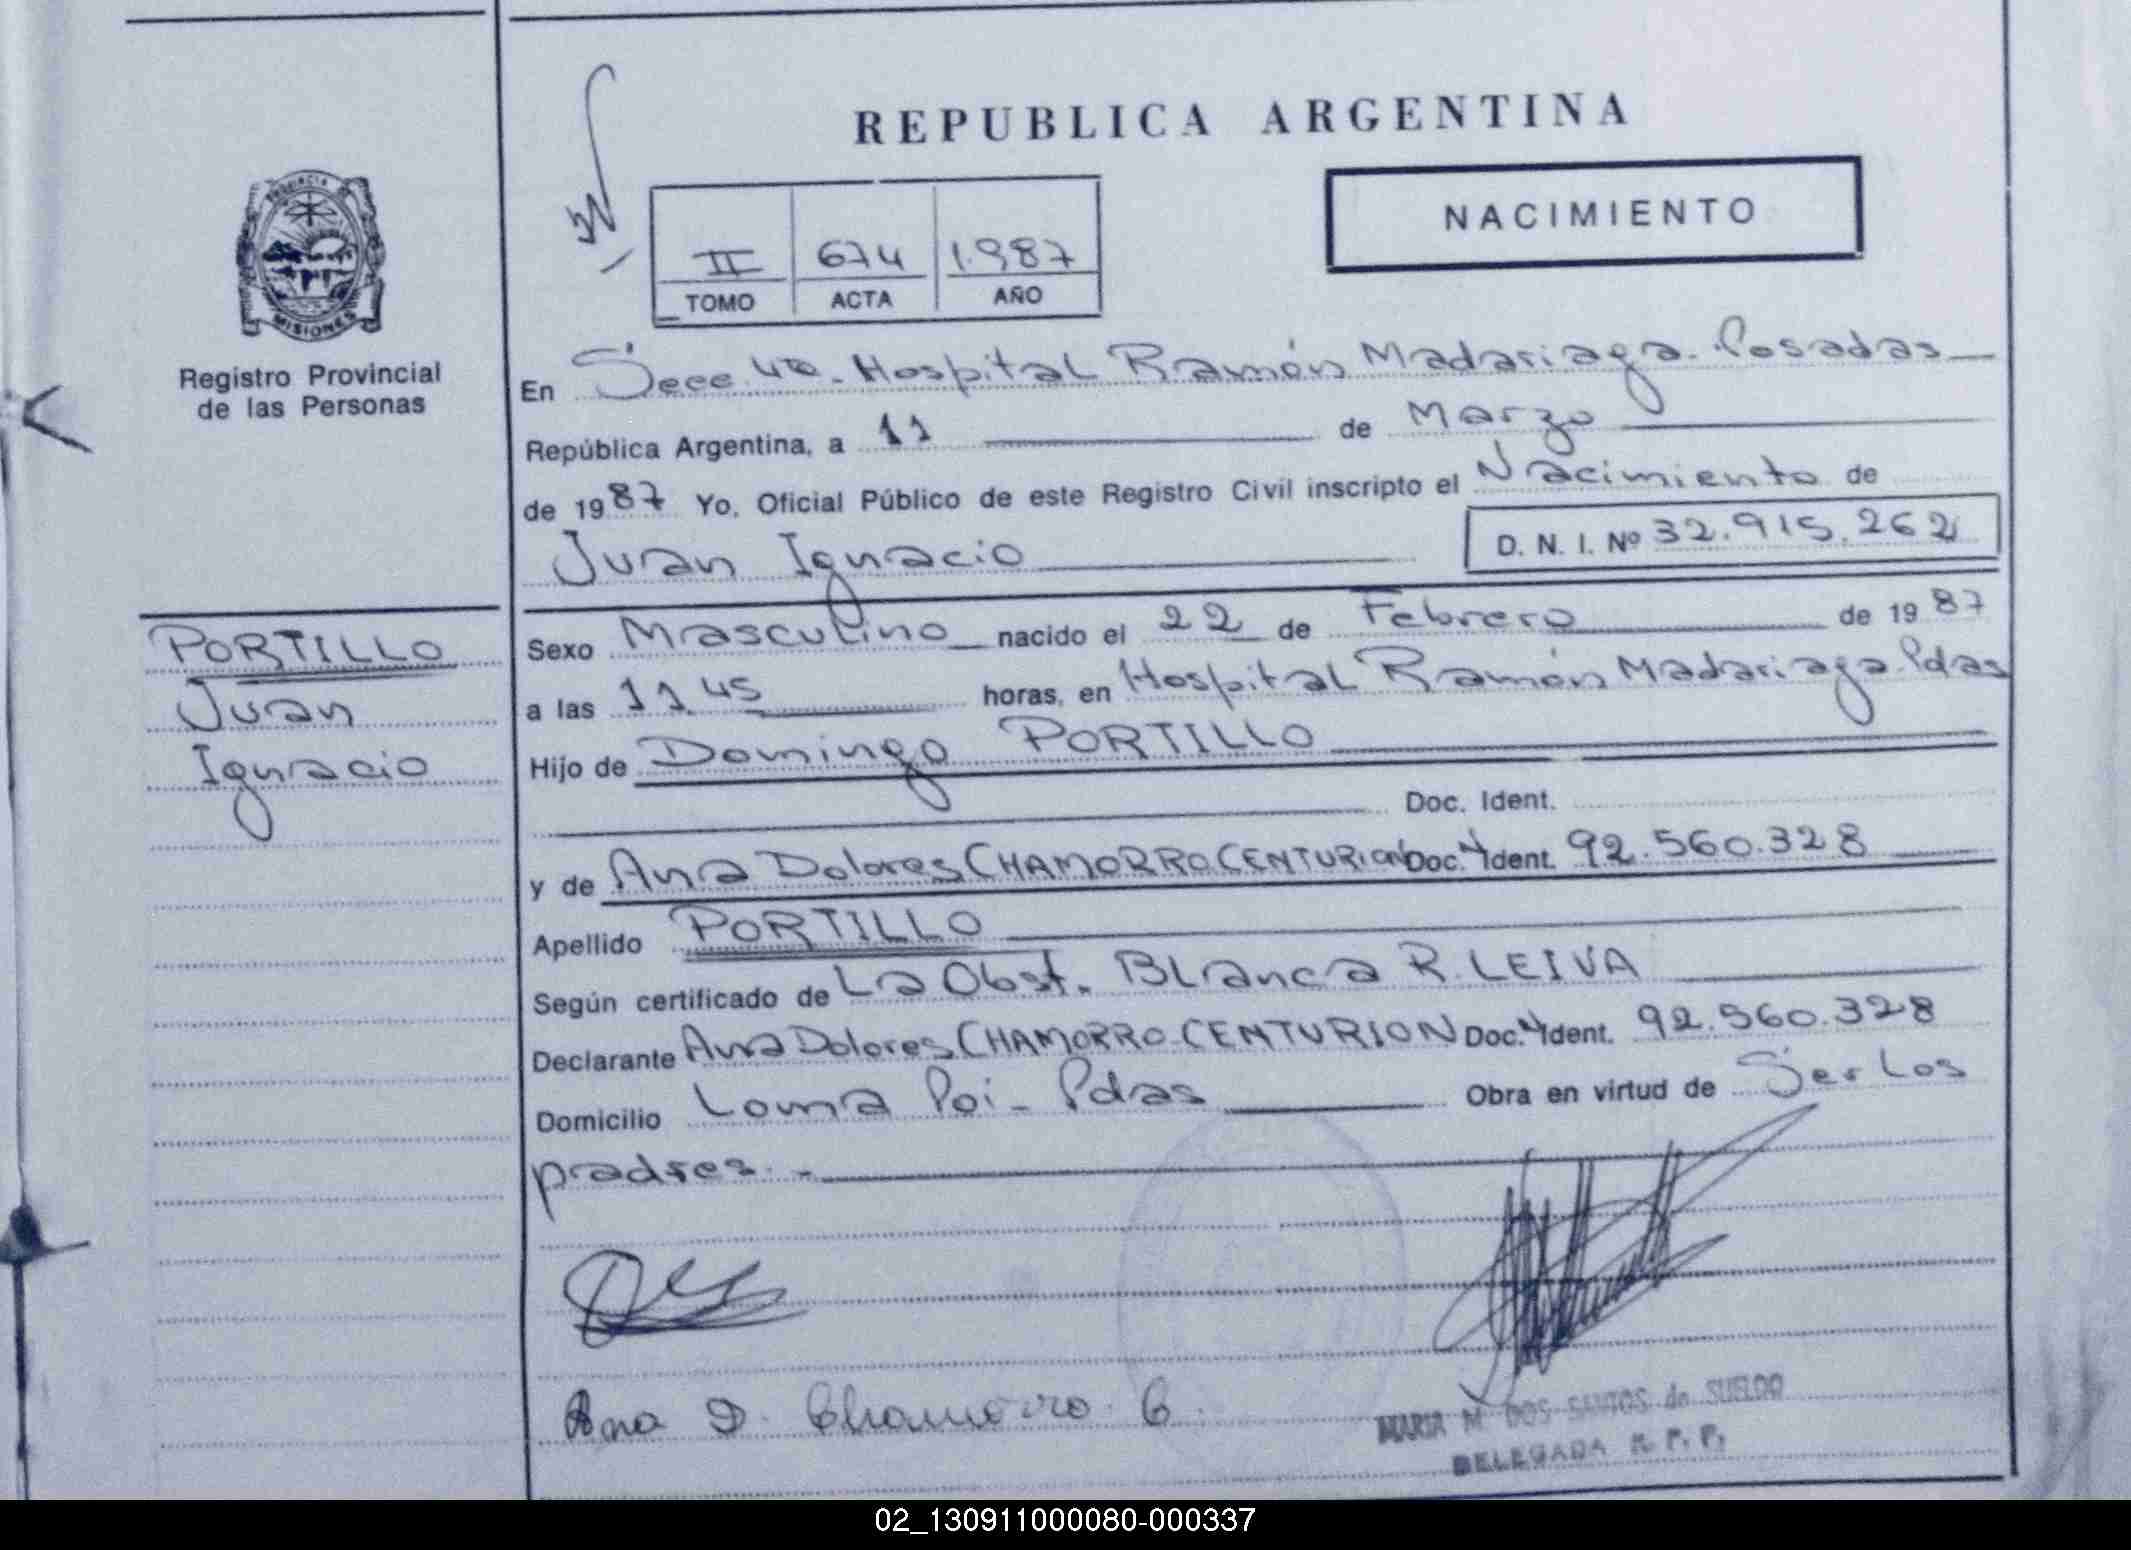 REPUBLICA ARGENTINA
NACIMIENTO
II 674 1.987
TOMO ACTA AÑO
PROVINCIA
MISIONES
Registro Provincial
de las Personas
En Secc. 4ta. Hospital Ramón Madariaga. Posadas
República Argentina, a 11 de Marzo
de 1987 Yo, Oficial Público de este Registro Civil inscripto el Nacimiento de
Juan Ignacio D. N. I. Nº 32.915.262
PORTILLO
Juan
Ignacio
Sexo Masculino nacido el 22 de Febrero de 1987
a las 11.45 horas, en Hospital Ramón Madariaga. Pdas
Hijo de Domingo PORTILLO
Doc. Ident.
y de Ana Dolores CHAMORRO CENTURION Doc. Ident. 92.560.328
Apellido PORTILLO
Según certificado de La Obst. Blanca R. LEIVA
Declarante Ana Dolores CHAMORRO CENTURION Doc. Ident. 92.560.328
Domicilio Loma Poi - Pdas Obra en virtud de Ser los
padres. -
Ana D. Chamorro C.
MARIA M. DOS SANTOS de SUELDO
DELEGADA R. P. P.
02_130911000080-000337